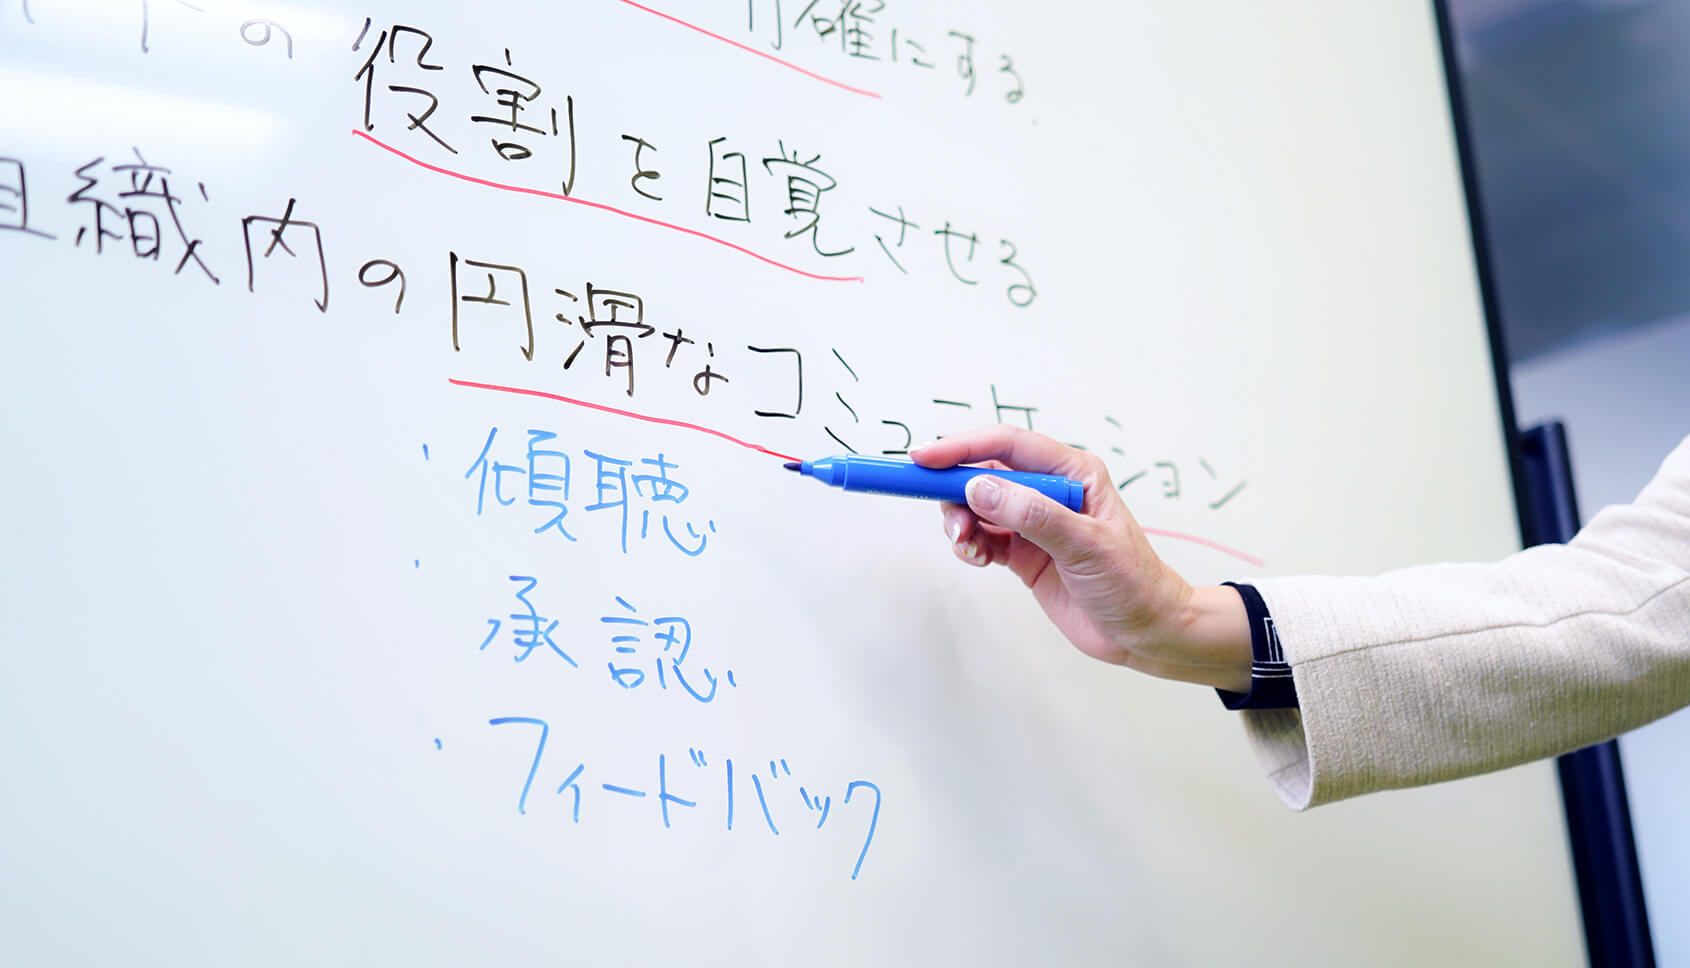 確にする
の役割を自覚させる
組織内の円滑なコミュニケーション
・傾聴
・承認
・フィードバック